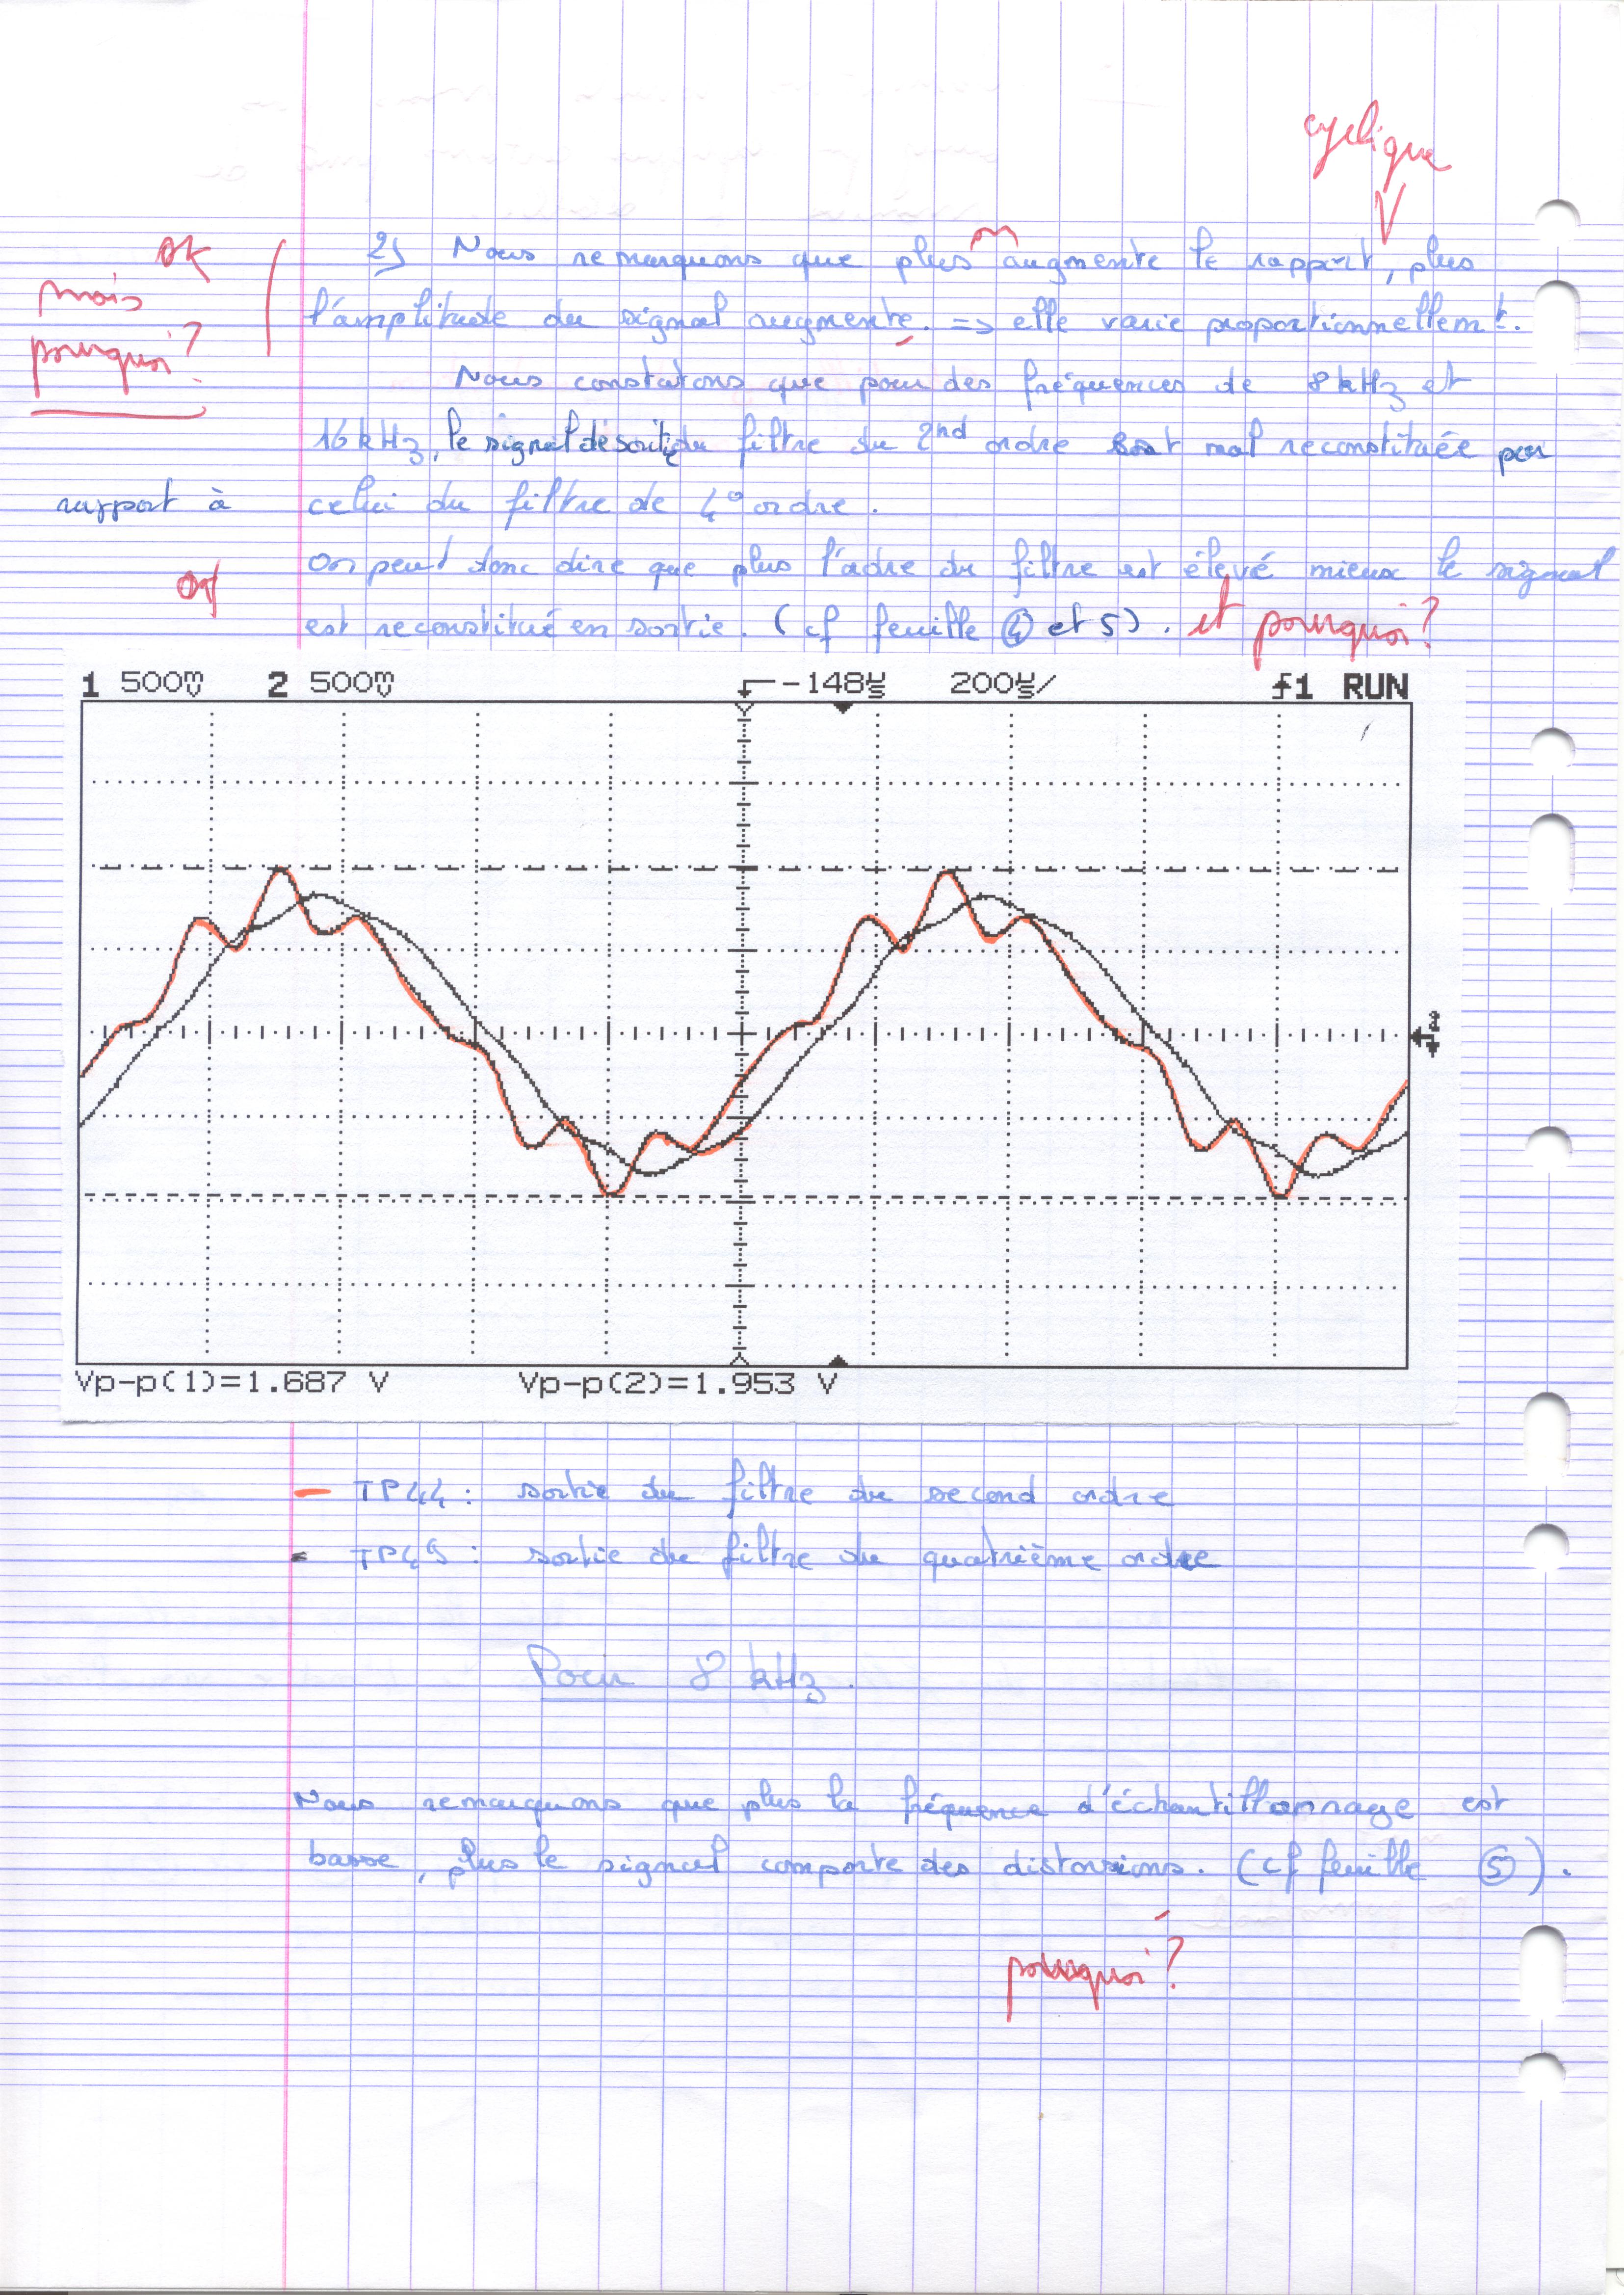 cyclique
V
ok
mais
pourquoi?
2) Nous remarquons que plus on augmente le rapport, plus
l'amplitude du signal augmente. => elle varie proportionnellemt.
Nous constatons que pour des fréquences de 8 kHz et
16 kHz, le signal de sortie du filtre du 2nd ordre est mal reconstituée par
rapport à celui du filtre de 4° ordre.
On peut donc dire que plus l'ordre du filtre est élevé mieux le signal
est reconstitué en sortie. (cf feuille 4 et 5). et pourquoi?
1 500mV 2 500mV -148us 200us/ 1 RUN
Vp-p(1)=1.687 V Vp-p(2)=1.953 V
- TP44 : sortie du filtre du second ordre
- TP45 : sortie du filtre du quatrième ordre
Pour 8 kHz.
Nous remarquons que plus la fréquence d'échantillonnage est
basse, plus le signal comporte des distorsions. (cf feuille 5).
pourquoi?